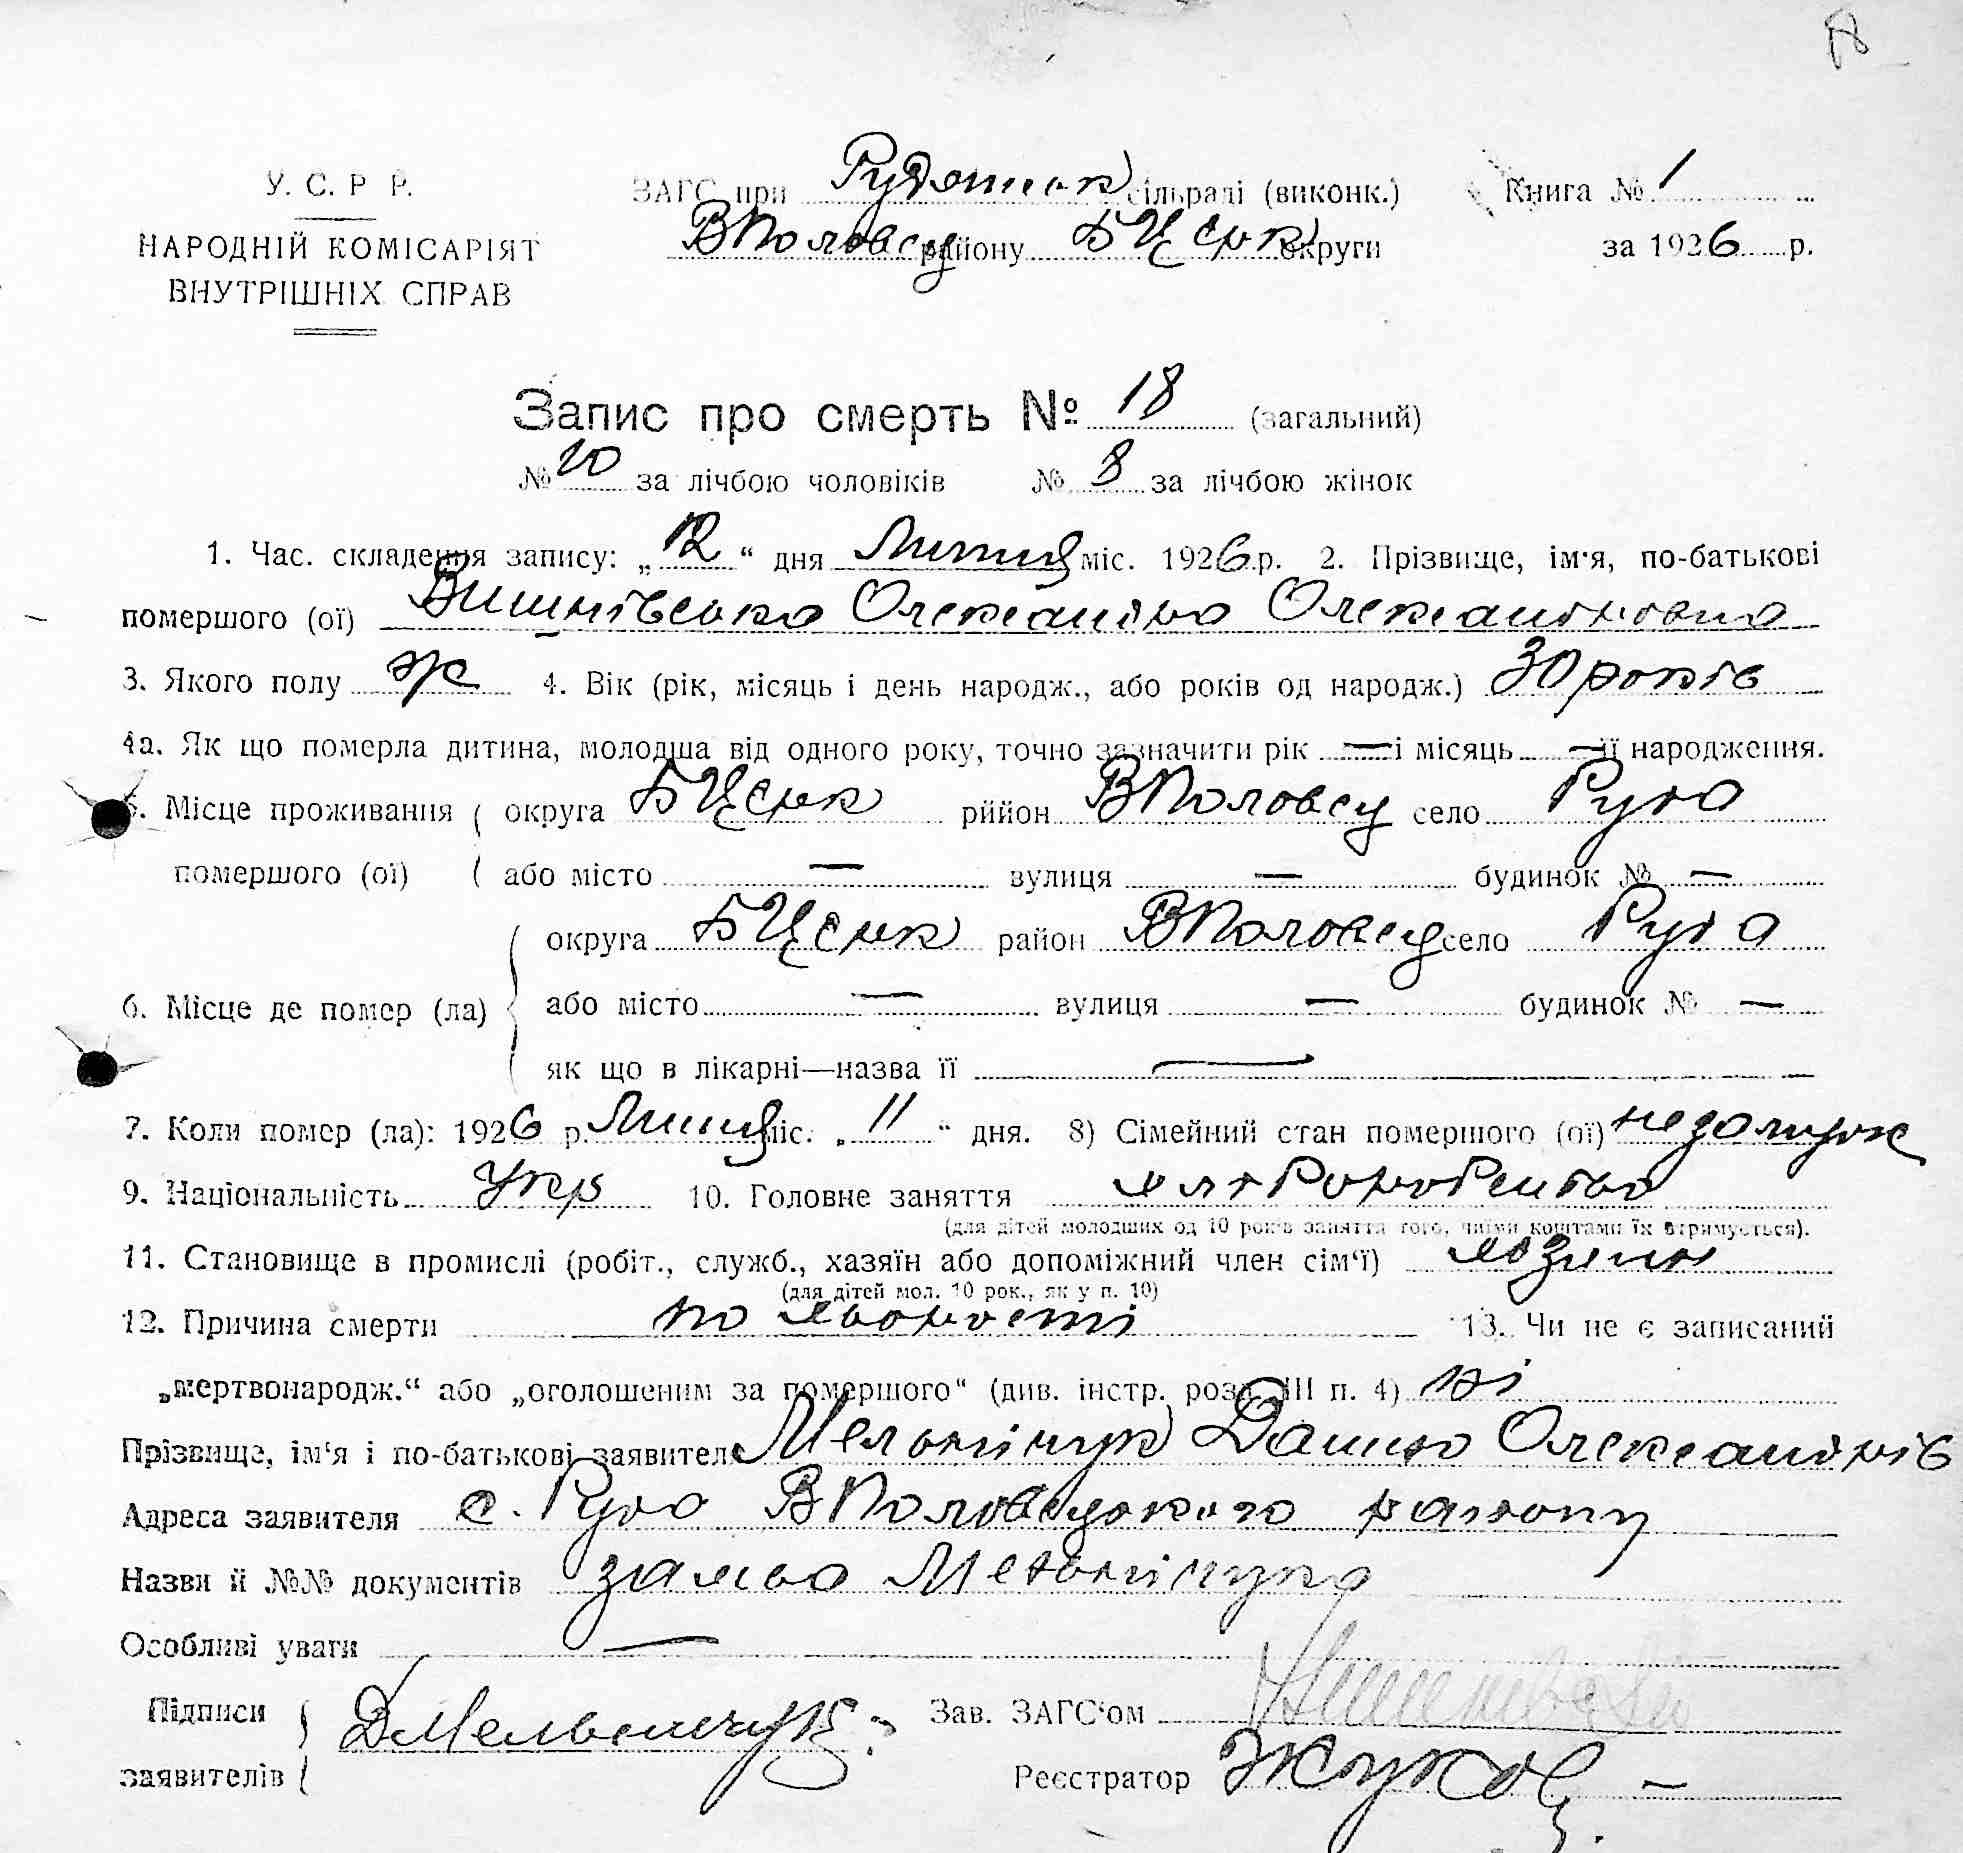 У. С. Р. Р.
НАРОДНІЙ КОМІСАРІЯТ
ВНУТРІШНІХ СПРАВ
ЗАГС при Рудянськ сільраді (виконк.)
ВПоловец району БЦерк округи
Книга № 1
за 1926 р.
Запис про смерть № 18 (загальний)
№ 10 за лічбою чоловіків № 8 за лічбою жінок
1. Час. складення запису: „12“ дня Липня міс. 1926 р. 2. Прізвище, ім'я, по-батькові
помершого (ої) Вишнівська Олександра Олександровна
3. Якого полу ж 4. Вік (рік, місяць і день народж., або років од народж.) 30 років
4а. Як що померла дитина, молодша від одного року, точно зазначити рік — і місяць — її народження.
5. Місце проживання округа БЦерк рййон ВПоловец село Руда
помершого (ої) або місто — вулиця — будинок № —
округа БЦерк район ВПоловец село Руда
6. Місце де помер (ла) або місто — вулиця — будинок № —
як що в лікарні—назва її —
7. Коли помер (ла): 1926 р. Липня міс. „11“ дня. 8) Сімейний стан помершого (ої)
9. Національність Укр 10. Головне заняття хліборобство
(для дітей молодших од 10 років заняття того, чиїми коштами їх втримується).
11. Становище в промислі (робіт., служб., хазяїн або допоміжний член сім'ї)
(для дітей мол. 10 рок., як у п. 10)
12. Причина смерти по хворості 13. Чи не є записаний
„мертвонародж.“ або „оголошеним за помершого“ (див. інстр. розд. III п. 4) ні
Прізвище, ім'я і по-батькові заявителя Мельничук Данило Олександрів
Адреса заявителя с. Руда ВПоловецького району
Назви й №№ документів заява Мельничука
Особливі уваги —
Підписи
заявителів ДМельничук
Зав. ЗАГС'ом
Реєстратор